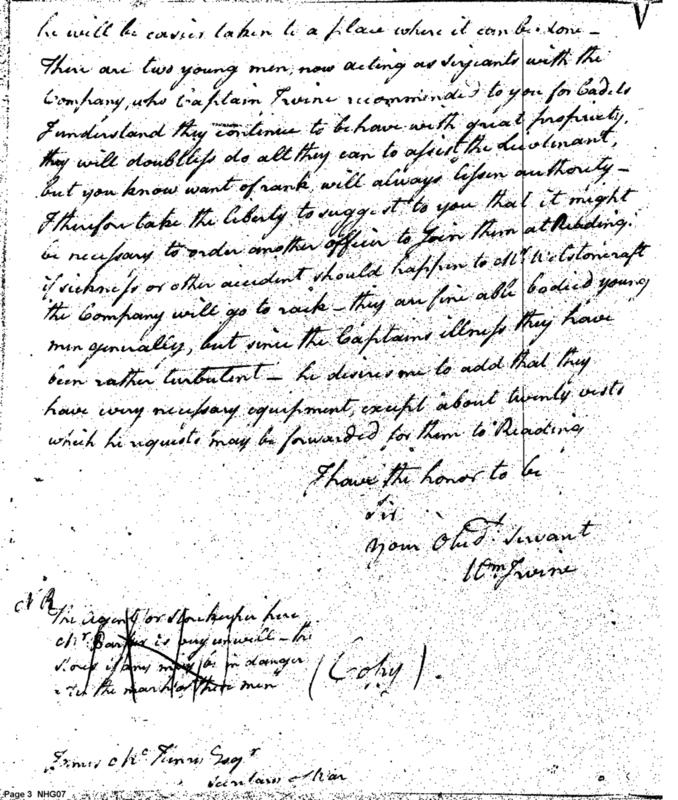 he will be easier taken to a place where it can be done –
V
There are two young men, now acting as serjeants with the
Company, who Captain Irvine recommended to you for Cadets
I understand they continue to behave with great propriety,
they will doubtless do all they can to assist the Lieutenant,
but you know want of rank, will always lessen authority –
I therefore take the liberty to suggest to you that it might
be necessary to order another officer to join them at Reading.
if sickness or other accident should happen to Mr. Wolstoncraft
the Company will go to rack – they are fine able bodied young
men generally, but since the Captains illness they have
been rather turbulent – he desires me to add that they
have every necessary equipment, except about twenty vests
which he requests may be forwarded for them to Reading
I have the honor to be
Sir
your Obedt. Servant
Wm. Irvine
NB
The Agent or Storekeeper here
Mr. is very unwell – the
Stores if any may be in danger
the march of these men
(Copy).
James McHenry Esqr.
Secretary of War
Page 3 NHG07